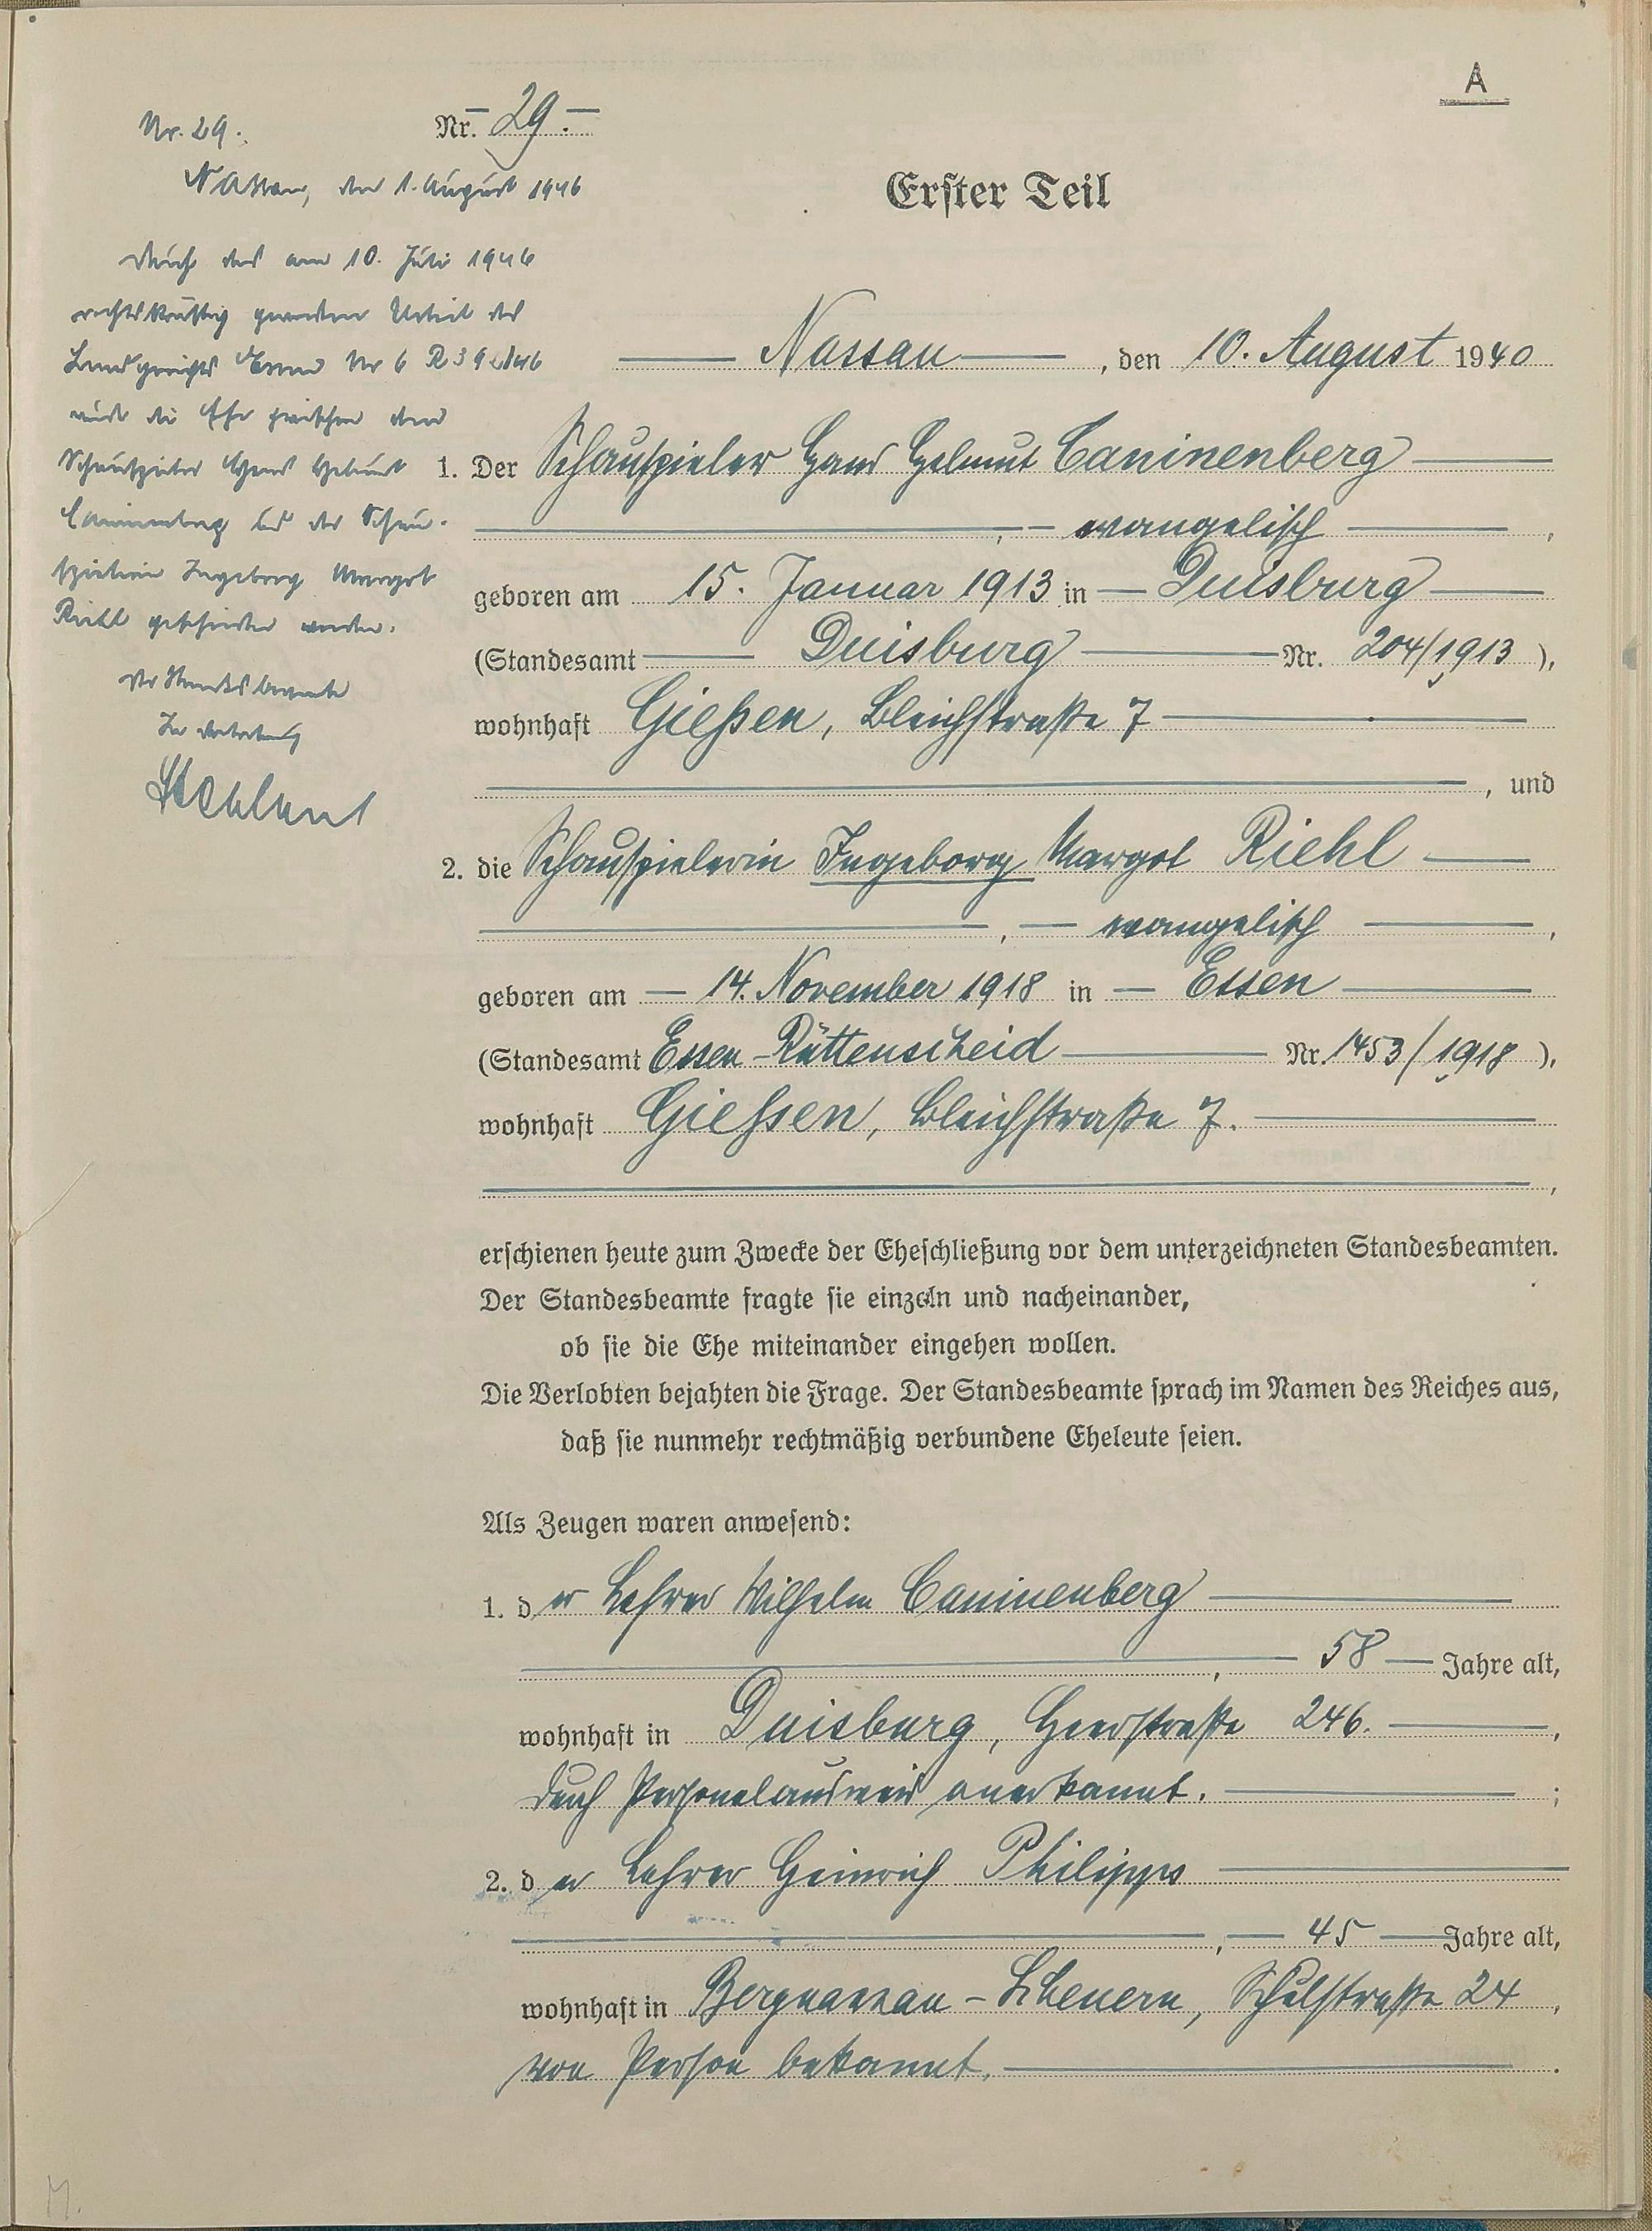 A
Nr. 29.
Nassau, den 1. August 1946
Durch das am 10. Juli 1946
rechtskräftig gewordene Urteil des
Landgerichts Nr 6 R 392/46
wurde die Ehe zwischen dem
Schauspieler Hans Helmut
Caninenberg und der Schau-
spielerin Ingeborg Margot
Riehl geschieden worden.
Der Standesbeamte
In Vertretung
Nr. 29.
Erster Teil
Nassau, den 10. August 1940
1. Der Schauspieler Hans Helmut Caninenberg
, evangelisch,
geboren am 15. Januar 1913 in Duisburg
(Standesamt Duisburg Nr. 204/1913),
wohnhaft Gießen, Bleichstraße 7
, und
2. die Schauspielerin Ingeborg Margot Riehl
, evangelisch,
geboren am 14. November 1918 in Essen
(Standesamt Essen-Rüttenscheid Nr. 1453/1918),
wohnhaft Gießen, Bleichstraße 7.
,
erschienen heute zum Zwecke der Eheschließung vor dem unterzeichneten Standesbeamten.
Der Standesbeamte fragte sie einzeln und nacheinander,
ob sie die Ehe miteinander eingehen wollen.
Die Verlobten bejahten die Frage. Der Standesbeamte sprach im Namen des Reiches aus,
daß sie nunmehr rechtmäßig verbundene Eheleute seien.
Als Zeugen waren anwesend:
1. der Lehrer Wilhelm Caninenberg
, 58 Jahre alt,
wohnhaft in Duisburg, Heerstraße 246.,
durch Personalausweis anerkannt. ;
2. der Lehrer Heinrich Philipps
, 45 Jahre alt,
wohnhaft in Bergnassau-Scheuern, Schulstraße 24,
von Person bekannt. .
M.